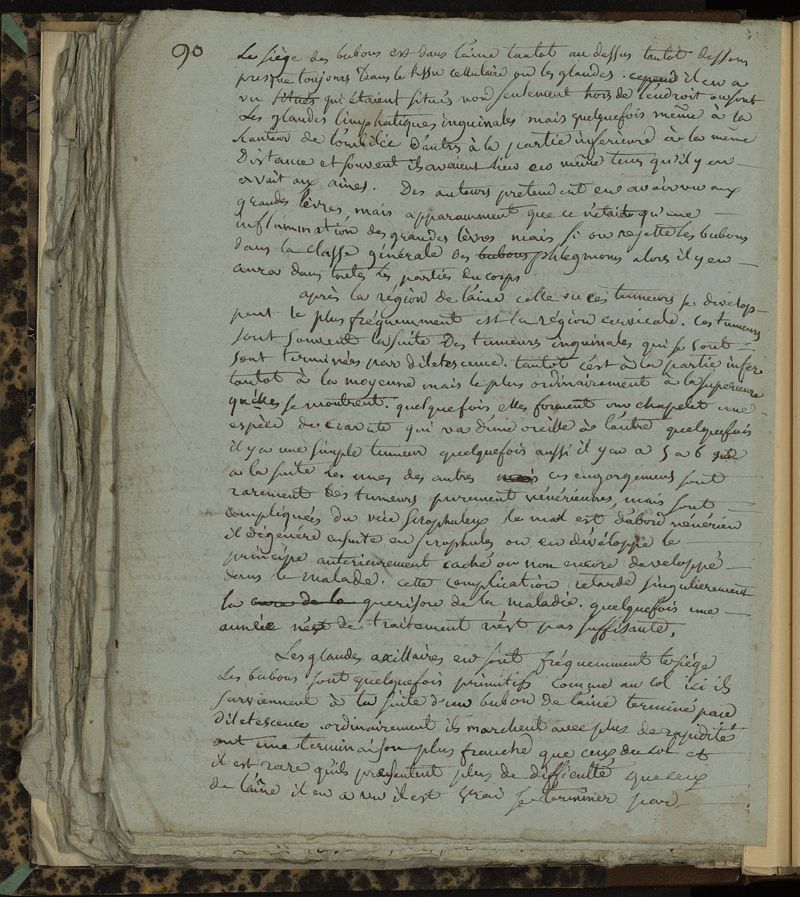 90
Le siège des bubons est dans l'aine tantot au dessus tantot dessous
presque toujours dans le tissu cellulaire ou les glandes. cepend il en a
vu situés qui étaient situés non seulement hors de l'endroit ou sont
Les glandes limphatiques inguinales mais quelquefois même à la
hauteur de l'ombilic d'autres à la partie inferieure à la même
Distance et souvent ils avaient lieu en même tems qu'il y en
avait aux aines. Des auteurs pretendent en avoir vu aux
grandes lèvres, mais apparamment que ce n'etait qu'une
inflammation des grandes lèvres mais si on rejette les bubons
dans la classe générale des bubons phlegmons alors il y en
aura dans toutes les parties du corps
après la région de l'aine celle ou ces tumeurs se develop-
pent le plus fréquemment est la région cervicale. Ces tumeurs
sont souvent la suite Des tumeurs inguinales qui se sont
sont terminées par diletescence. tantot c'est à la partie infer
tantot à la moyenne mais le plus ordinairement à la superieure
qu'elles se montrent. quelquefois elles forment un chapelet une
espèce de cravate qui va d'une oreille à l'autre quelquefois
il y a une simple tumeur quelquefois aussi il y en a 5 a 6
a la suite les unes des autres mais ces engorgemens sont
rarement Des tumeurs purement vénériennes, mais sont
compliquées du vice scrophuleux le mal est d'abord vénérien
il dégénére ensuite en scrophules ou en développe le
principe anterieurement caché ou non encore developpé
dans le malade. cette complication retarde singulierement
la cure de la guerison de la maladie. quelquefois une
année de traitement n'est pas suffisante.
Les glandes axillaires en sont fréquemment le siège
Les bubons sont quelquefois primitifs comme au col ici ils
surviennent à la suite d'un bubon de l'aine terminé par
diletescence. ordinairement ils marchent avec plus de rapidité
ont une terminaison plus franche que ceux du col et
il est rare qu'ils presentent plus de difficulté que ceux
de l'aine il en a vu il est vrai se terminer par